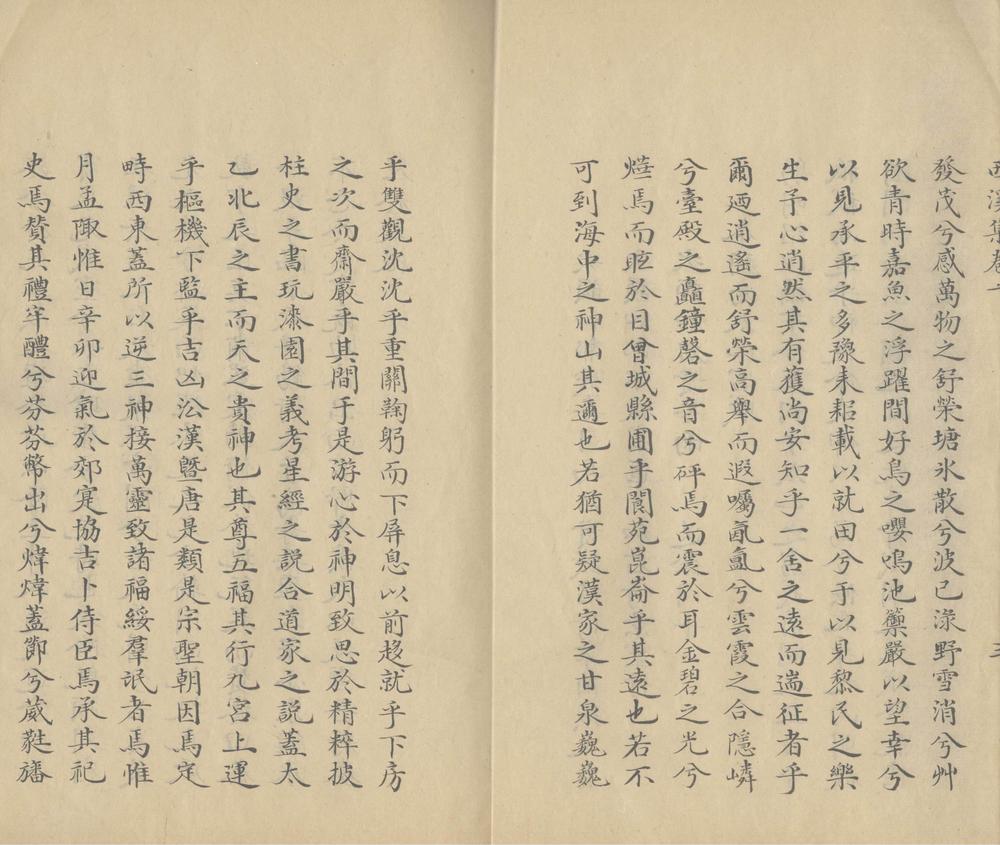 西溪集卷一　三
發茂兮感萬物之舒榮塘氷散兮波已淥野雪消兮艸
欲青時嘉魚之浮躍間好鳥之嚶鳴池籞嚴以望幸兮
以見承平之多豫耒耜載以就田兮于以見黎民之樂
生予心逍然其有蒦尚安知乎一舍之遠而遄征者乎
爾廼逍遙而舒榮高舉而遐矚氤氲兮雲霞之合隱嶙
兮臺殿之矗鐘磬之音兮砰焉而震於耳金碧之光兮
爔焉而眩於目曾城縣圃乎閬苑崑崙乎其遠也若不
可到海中之神山其邇也若猶可疑漢家之甘泉巍巍
乎雙觀沈沈乎重關鞠躬而下屏息以前趍就乎下房
之次而齋嚴乎其間于是游心於神明致思於精粹披
柱史之書玩漆園之義考星經之説合道家之説蓋太
乙北辰之主而天之貴神也其尊五福其行九宮上運
乎樞機下監乎吉凶㳂漢曁唐是類是宗聖朝因焉定
畤西東蓋所以逆三神接萬靈致諸福綏羣氓者焉惟
月孟陬惟日辛卯迎氣於郊寔協吉卜侍臣焉承其祀
史焉賛其禮牢醴兮芬芬幣出兮煒煒蓋節兮葳蕤旛